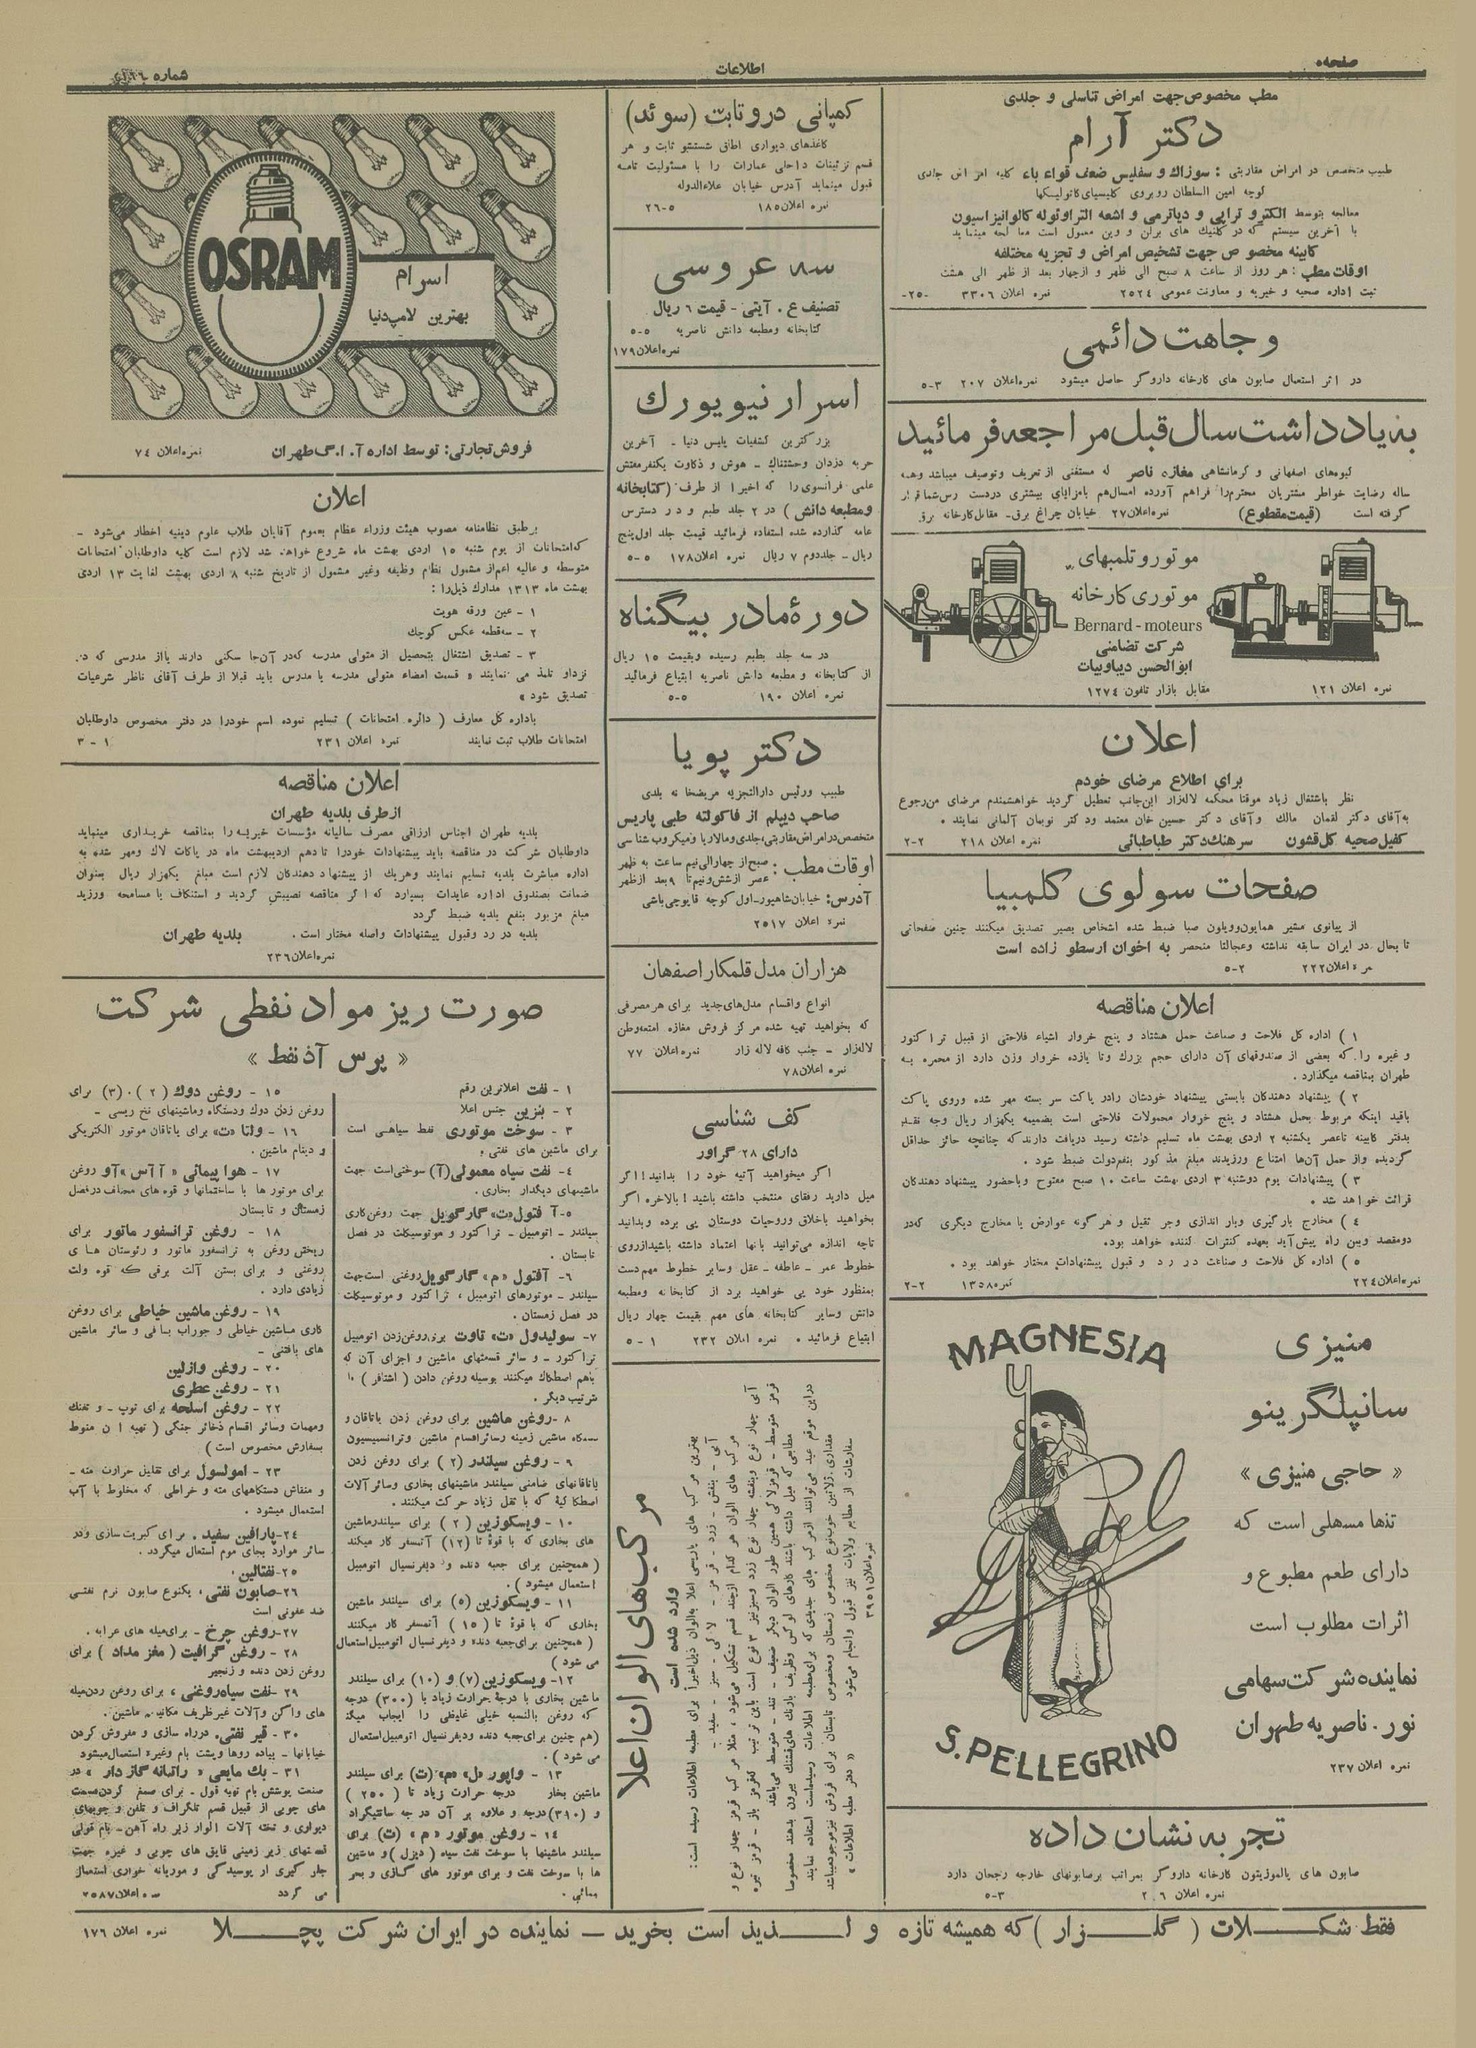 صفحه
اطلاعات
شماره
مطب مخصوص جهت امراض تناسلی و جلدی
دکتر آرام
طبیب متخصص در امراض مقاربتی : سوزاك و سفلیس ضعف قواء باء کلیه امراض جلدی
کوچه امین السلطان روبروی کلیسیای کاتولیکها
معالجه بتوسط الکترو تراپی و دیاترمی و اشعه التراویوله کالوانیزاسیون
با آخرین سیستم که در کلنیك های برلن و وین معمول است معالجه مینماید
کابینه مخصوص جهت تشخیص امراض و تجزیه مختلفه
اوقات مطب : هر روز از ساعت ۸ صبح الی ظهر و از چهار بعد از ظهر الی هشت
ثبت اداره صحیه و خیریه و معاونت عمومی ۲۵۲۴ نمره اعلان ۳۳۰۶ -۲۵-
وجاهت دائمی
در اثر استعمال صابون های کارخانه داروگر حاصل میشود نمره اعلان ۲۰۷ ۳-۵
به یادداشت سال قبل مراجعه فرمائید
گیوه‌های اصفهانی و کرمانشاهی مغازه ناصر که مستغنی از تعریف و توصیف میباشد و همه
ساله رضایت خاطر مشتریان محترم را فراهم آورده امسال هم با مزایای بیشتری در دست رس شما قرار
گرفته است (قیمت مقطوع) نمره اعلان ۲۷ خیابان چراغ برق- مقابل کارخانه برق
موتور و تلمبهای
موتوری کارخانه
Bernard - moteurs
شرکت تضامنی
ابوالحسن دیبا و بیات
نمره اعلان ۱۲۱ مقابل بازار تلفون ۱۲۷۴
اعلان
برای اطلاع مرضای خودم
نظر باشتغال زیاد موقتا محکمه لاله‌زار این‌جانب تعطیل گردید خواهشمندم مرضای من رجوع
به آقای دکتر لقمان مالك و آقای دکتر حسین خان معتمد و دکتر نویمان آلمانی نمایند .
کفیل صحیه کل قشون سرهنك دکتر طباطبائی نمره اعلان ۲۱۸ ۲-۲
صفحات سولوی کلمبیا
از پیانوی مشیر همایون و ویلون صبا ضبط شده اشخاص بصیر تصدیق میکنند چنین صفحاتی
تا بحال در ایران سابقه نداشته و عجالتا منحصر به اخوان ارسطو زاده است
نمره اعلان ۲۲۲ ۲-۵
اعلان مناقصه
۱ ) اداره کل فلاحت و صناعت حمل هشتاد و پنج خروار اشیاء فلاحتی از قبیل تراکتور
و غیره را که بعضی از صندوقهای آن دارای حجم بزرك و تا یازده خروار وزن دارد از محمره به
طهران بمناقصه میگذارد .
۲ ) پیشنهاد دهندگان بایستی پیشنهاد خودشان را در پاکت سر بسته مهر شده و روی پاکت
باقید اینکه مربوط بحمل هشتاد و پنج خروار محمولات فلاحتی است بضمیمه یکهزار ریال وجه نقد
بدفتر کابینه تا عصر یکشنبه ۲ اردی بهشت ماه تسلیم داشته رسید دریافت دارند که چنانچه حائز حداقل
گردیده و از حمل آن‌ها امتناع ورزیدند مبلغ مذکور بنفع دولت ضبط شود .
۳ ) پیشنهادات یوم دوشنبه ۳ اردی بهشت ساعت ۱۰ صبح مفتوح و باحضور پیشنهاد دهندگان
قرائت خواهد شد .
۴ ) مخارج بارگیری و بار اندازی و جر ثقیل و هر گونه عوارض یا مخارج دیگری که در
دو مقصد و بین راه پیش آید بعهده کنترات کننده خواهد بود.
۵ ) اداره کل فلاحت و صناعت در رد و قبول پیشنهادات مختار خواهد بود .
نمره اعلان ۲۲۴ نمره ۱۳۵۸ ۲-۲
MAGNESIA
S. PELLEGRINO
منیزی
سانپلگرینو
« حاجی منیزی »
تنها مسهلی است که
دارای طعم مطبوع و
اثرات مطلوب است
نماینده شرکت سهامی
نور . ناصریه طهران
نمره اعلان ۲۳۷
تجربه نشان داده
صابون های پالموزیتون کارخانه داروگر بمراتب برصابونهای خارجه رجحان دارد
نمره اعلان ۲۰۶ ۳-۵
کمپانی دروتابت (سوئد)
کاغذهای دیواری اطاق شستشو ثابت و هر
قسم تزئینات داخلی عمارات را با مسئولیت تامه
قبول مینماید آدرس خیابان علاءالدوله
نمره اعلان ۱۸۵ ۵-۲۶
سه عروسی
تصنیف ع. آیتی - قیمت ۶ ریال
کتابخانه و مطبعه دانش ناصریه ۵-۵
نمره اعلان ۱۷۹
اسرار نیویورك
بزرگترین کشفیات پلیس دنیا - آخرین
حربه دزدان وحشتناك - هوش و ذکاوت یکنفر مفتش
علمی فرانسوی را که اخیرا از طرف (کتابخانه
و مطبعه دانش ) در ۲ جلد طبع و در دسترس
عامه گذارده شده استفاده فرمائید قیمت جلد اول پنج
ریال - جلد دوم ۷ ریال نمره اعلان ۱۷۸ ۵-۵
دورۀ مادر بیگناه
در سه جلد بطبع رسیده و بقیمت ۱۵ ریال
از کتابخانه و مطبعه دانش ناصریه ابتیاع فرمائید
نمره اعلان ۱۹۰ ۵-۵
دکتر پویا
طبیب و رئیس دارالتجزیه مریضخانه بلدی
صاحب دیپلم از فاکولته طبی پاریس
متخصص در امراض مقاربتی، جلدی و مالاریا و میکروب شناسی
اوقات مطب : صبح از چهار الی نیم ساعت به ظهر
عصر از شش و نیم تا ۹ بعد از ظهر
آدرس: خیابان شاهپور-اول کوچه قاپوچی باشی
نمره اعلان ۲۵۱۷
هزاران مدل قلمکار اصفهان
انواع و اقسام مدل‌های جدید برای هر مصرفی
که بخواهید تهیه شده مرکز فروش مغازه امتعه وطن
لاله‌زار - جنب کافه لاله زار نمره اعلان ۷۷
نمره اعلان ۷۸
کف شناسی
دارای ۲۸ گراور
اگر میخواهید آتیه خود را بدانید! اگر
میل دارید رفقای منتخب داشته باشید! بالاخره اگر
بخواهید باخلاق و روحیات دوستان پی برده و بدانید
تا چه اندازه می‌توانید بانها اعتماد داشته باشید از روی
خطوط عمر - عاطفه - عقل و سایر خطوط مهم دست
بمنظور خود پی خواهید برد از کتابخانه و مطبعه
دانش و سایر کتابخانه های مهم بقیمت چهار ریال
ابتیاع فرمائید . نمره اعلان ۲۳۲ ۱-۵
مرکب‌های الوان اعلا
وارد شده است
بهترین مرکب های پاریسی اعلا بالوان ذیل اخیراً برای مطبعه اطلاعات رسیده است :
آبی - بنفش - زرد - قرمز - لاکی - سبز - سفید -
مرکب های الوان هر کدام از چند قسم تشکیل می‌شود ، مثلا مرکب قرمز چهار نوع و
آبی چهار نوع و بنفشه چهار نوع زرد و سبز نیز ۳ نوع است باین ترتیب که قرمز باز - قرمز تیره
قرمز متوسط - قرمز لاکی همین طور الوان دیگر ضعیف - تند - متوسط می‌باشد
مطابعی که میل داشته باشند کارهای لوکس و ظریف با رنك های قشنك بیرون بدهند مخصوصا
در این موقع عید می‌توانند از مرکب های جدیدی که برای مطبعه اطلاعات رسیده است استفاده نمایند
مقداری ژلاتین خوب نوع مخصوص زمستان و مخصوص تابستان برای فروش نیز موجود میباشد
سفارشات از مطابع ولایات نیز قبول و انجام می‌شود « دفتر مطبعه اطلاعات »
نمره اعلان ۳۹۵۱
OSRAM
اسرام
بهترین لامپ دنیا
فروش تجارتی: توسط اداره آ . ا . گ طهران نمره اعلان ۷۴
اعلان
برطبق نظامنامه مصوب هیئت وزراء عظام بعموم آقایان طلاب علوم دینیه اخطار می‌شود -
که امتحانات از یوم شنبه ۱۵ اردی بهشت ماه شروع خواهد شد لازم است کلیه داوطلبان امتحانات
متوسطه و عالیه اعم از مشمول نظام وظیفه و غیر مشمول از تاریخ شنبه ۸ اردی بهشت لغایت ۱۳ اردی
بهشت ماه ۱۳۱۳ مدارك ذیل را :
۱ - عین ورقه هویت
۲ - سه قطعه عکس کوچك
۳ - تصدیق اشتغال بتحصیل از متولی مدرسه که در آن‌جا سکنی دارند یا از مدرسی که در
نزد او تلمذ می نمایند « قسمت امضاء متولی مدرسه یا مدرس باید قبلا از طرف آقای ناظر شرعیات
تصدیق شود »
باداره کل معارف ( دائره امتحانات ) تسلیم نموده اسم خود را در دفتر مخصوص داوطلبان
امتحانات طلاب ثبت نمایند نمره اعلان ۲۳۱ ۱-۳
اعلان مناقصه
از طرف بلدیه طهران
بلدیه طهران اجناس ارزاقی مصرف سالیانه مؤسسات خیریه را بمناقصه خریداری مینماید
داوطلبان شرکت در مناقصه باید پیشنهادات خود را تا دهم اردیبهشت ماه در پاکات لاك و مهر شده به
اداره مباشرت بلدیه تسلیم نمایند و هریك از پیشنهاد دهندگان لازم است مبلغ یکهزار ریال بعنوان
ضمانت بصندوق اداره عایدات بسپارد که اگر مناقصه نصیبش گردید و استنکاف یا مسامحه ورزید
مبلغ مزبور بنفع بلدیه ضبط گردد
بلدیه در رد و قبول پیشنهادات واصله مختار است . بلدیه طهران
نمره اعلان ۲۳۶
صورت ریز مواد نفطی شرکت
« پرس آذ نفط »
۱ - نفت اعلاترین رقم
۲ - بنزین جنس اعلا
۳ - سوخت موتوری نفط سیاهی است
برای ماشین های نفتی.
۴ - نفت سیاه معمولی (آ) سوختی است جهت
ماشینهای دیگدار بخاری .
۵- آفتول «ت» گارگویل جهت روغن کاری
سیلندر - اتومبیل - تراکتور و موتوسیکلت در فصل
تابستان .
۶- آفتول «م» گارگویل روغنی است جهت
سیلندر - موتورهای اتومبیل ، تراکتور و موتوسیکلت
در فصل زمستان .
۷- سولیدول «ت» تاوت برای روغن زدن اتومبیل
تراکتور - و سائر قسمتهای ماشین و اجزای آن که
باهم اصطکاك میکنند بوسیله روغن دادن ( اشتافر ) یا
ترتیب دیگر .
۸ -روغن ماشین برای روغن زدن یاتاقان و
دستگاه ماشین زمینه و سائر اقسام ماشین و ترانسمیسیون
۹ - روغن سیلندر (۲) برای روغن زدن
یاتاقانهای ضامنی سیلندر ماشینهای بخاری و سائر آلات
اصطکاکیه که با ثقل زیاد حرکت میکنند .
۱۰ - ویسکوزین (۲) برای سیلندر ماشین
های بخاری که با قوۀ تا (۱۲) آتمسفر کار میکند
(همچنین برای جعبه دنده و دیفرنسیال اتومبیل
استعمال میشود ) .
۱۱ - ویسکوزین (۵) برای سیلندر ماشین
بخاری که با قوۀ تا (۱۵) آتمسفر کار میکنند
( همچنین برای جعبه دنده و دیفرنسیال اتومبیل استعمال
می شود )
۱۲- ویسکوزین (۷) و (۱۰) برای سیلندر
ماشین بخاری با درجۀ حرارت زیاد با (۳۰۰) درجه
که روغن بالنسبه خیلی غلیظی را ایجاب میکند
(هم چنین برای جعبه دنده و دیفرنسیال اتومبیل استعمال
می شود ) .
۱۳ - واپور «ل» «م» (ت) برای سیلندر
ماشین بخار درجه حرارت زیاد تا (۲۵۰)
و (۳۱۰) درجه و علاوه بر آن درجه سانتیگراد
۱۴ - روغن موتور «م» (ت) برای
سیلندر ماشینها با سوخت نفت سیاه (دیزل) و ماشین
ها با سوخت نفت و برای موتور های گازی و بحر
پیمائی .
۱۵ - روغن دوك (۲) . (۳) برای
روغن زدن دوك و دستگاه و ماشینهای نخ ریسی -
۱۶ - ولتا «ت» برای یاتاقان موتور الکتریکی
و دینام ماشین .
۱۷ - هوا پیمائی « آآس » آو روغن
برای موتور ها با ساختمانها و قوه های مختلف در فصل
زمستان و تابستان
۱۸ - روغن ترانسفور ماتور برای
ریختن روغن به ترانسفور ماتور و رئوستان های
روغنی و برای بستن آلت برقی که قوه ولت
زیادی دارد .
۱۹ - روغن ماشین خیاطی برای روغن
کاری ماشین خیاطی و جوراب بافی و سائر ماشین
های بافتنی -
۲۰ - روغن وازلین
۲۱ - روغن عطری
۲۲ - روغن اسلحه برای توپ - و تفنك
و مهمات و سائر اقسام ذخائر جنگی ( تهیه آن منوط
بسفارش مخصوص است )
۲۳ - امولسول برای تقلیل حرارت مته -
و منقاش دستگاههای مته و خراطی که مخلوط با آب
استعمال میشود .
۲۴- پارافین سفید . برای کبریت سازی و در
سائر موارد بجای موم استعمال میگردد .
۲۵- نفتالین .
۲۶- صابون نفتی ، یکنوع صابون نرم نفتی
ضد عفونی است
۲۷- روغن چرخ - برای میله های عرابه .
۲۸ - روغن گرافیت ( مغز مداد ) برای
روغن زدن دنده و زنجیر
۲۹- نفت سیاه روغنی ، برای روغن زدن میله
های واگن و آلات غیر ظریف مکانیه . ماشین .
۳۰ - قیر نفتی . در راه سازی و مفروش کردن
خیابانها - پیاده روها و پشت بام و غیره استعمال میشود
۳۱ - بك مایعی « راتبانه گازدار » در
صنعت پوشش بام تهیه قول - برای صمغ کردن سمت
های چوبی از قبیل قسم تلگراف و تلفن و چوبهای
دیواری و تخته آلات الوار زیر راه آهن - بام قولی
قسمتهای زیر زمینی قایق های چوبی و غیره جهت
جلوگیری از پوسیدگی و موریانه خواری استعمال
می گردد نمره اعلان ۷۵۸۷
فقط شکلات ( گلزار ) که همیشه تازه و لذیذ است بخرید - نماینده در ایران شرکت پچلا نمره اعلان ۱۷۶